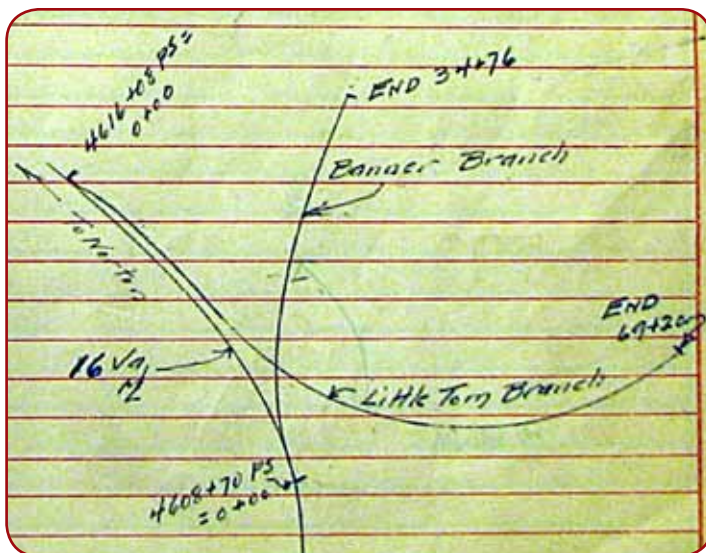 4616+08 PS=
0+00
END 34+76
Banner Branch
To Norton
END
69+20
16 Va,
ML
Little Tom Branch
4608+70 PS
=0+00